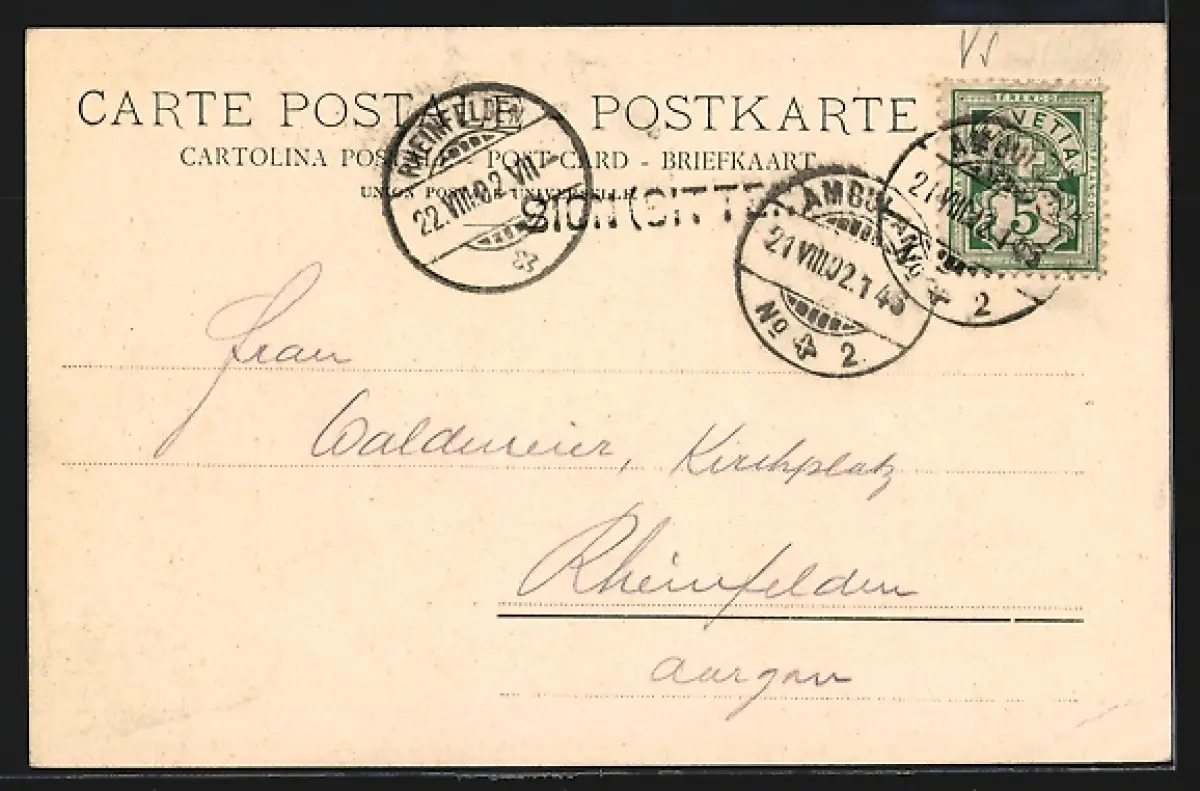 VS
CARTE POSTALE POSTKARTE
CARTOLINA POSTALE - POST-CARD - BRIEFKAART
UNION POSTALE UNIVERSELLE
RHEINFELDEN
22.VIII.02.VII-
SION (SITTEN)
AMBULANT
21 VIII.02.1 4
No 2
AMBULANT
21 VIII.02.1
No 2
FRANCO
HELVETIA
5
Frau
Waldmeier, Kirchplatz
Rheinfelden
Aargau